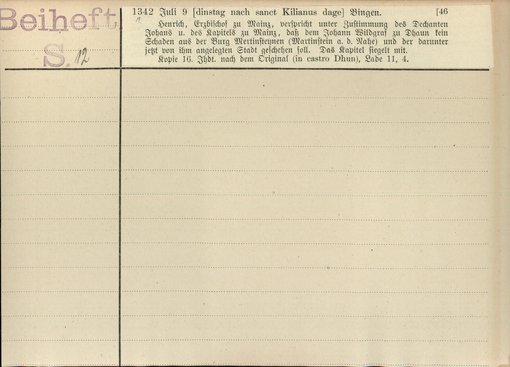 Beiheft
S. 12
1342 Juli 9 [dinstag nach sanct Kilianus dage] Bingen. [46
Henrich, Erzbischof zu Mainz, verspricht unter Zustimmung des Dechanten
Johans u. des Kapitels zu Mainz, daß dem Johann Wildgraf zu Dhaun kein
Schaden aus der Burg Mertinsteynen (Martinstein a. d. Nahe) und der darunter
jetzt von ihm angelegten Stadt geschehen soll. Das Kapitel siegelt mit.
Kopie 16. Jhdt. nach dem Original (in castro Dhun), Lade 11, 4.